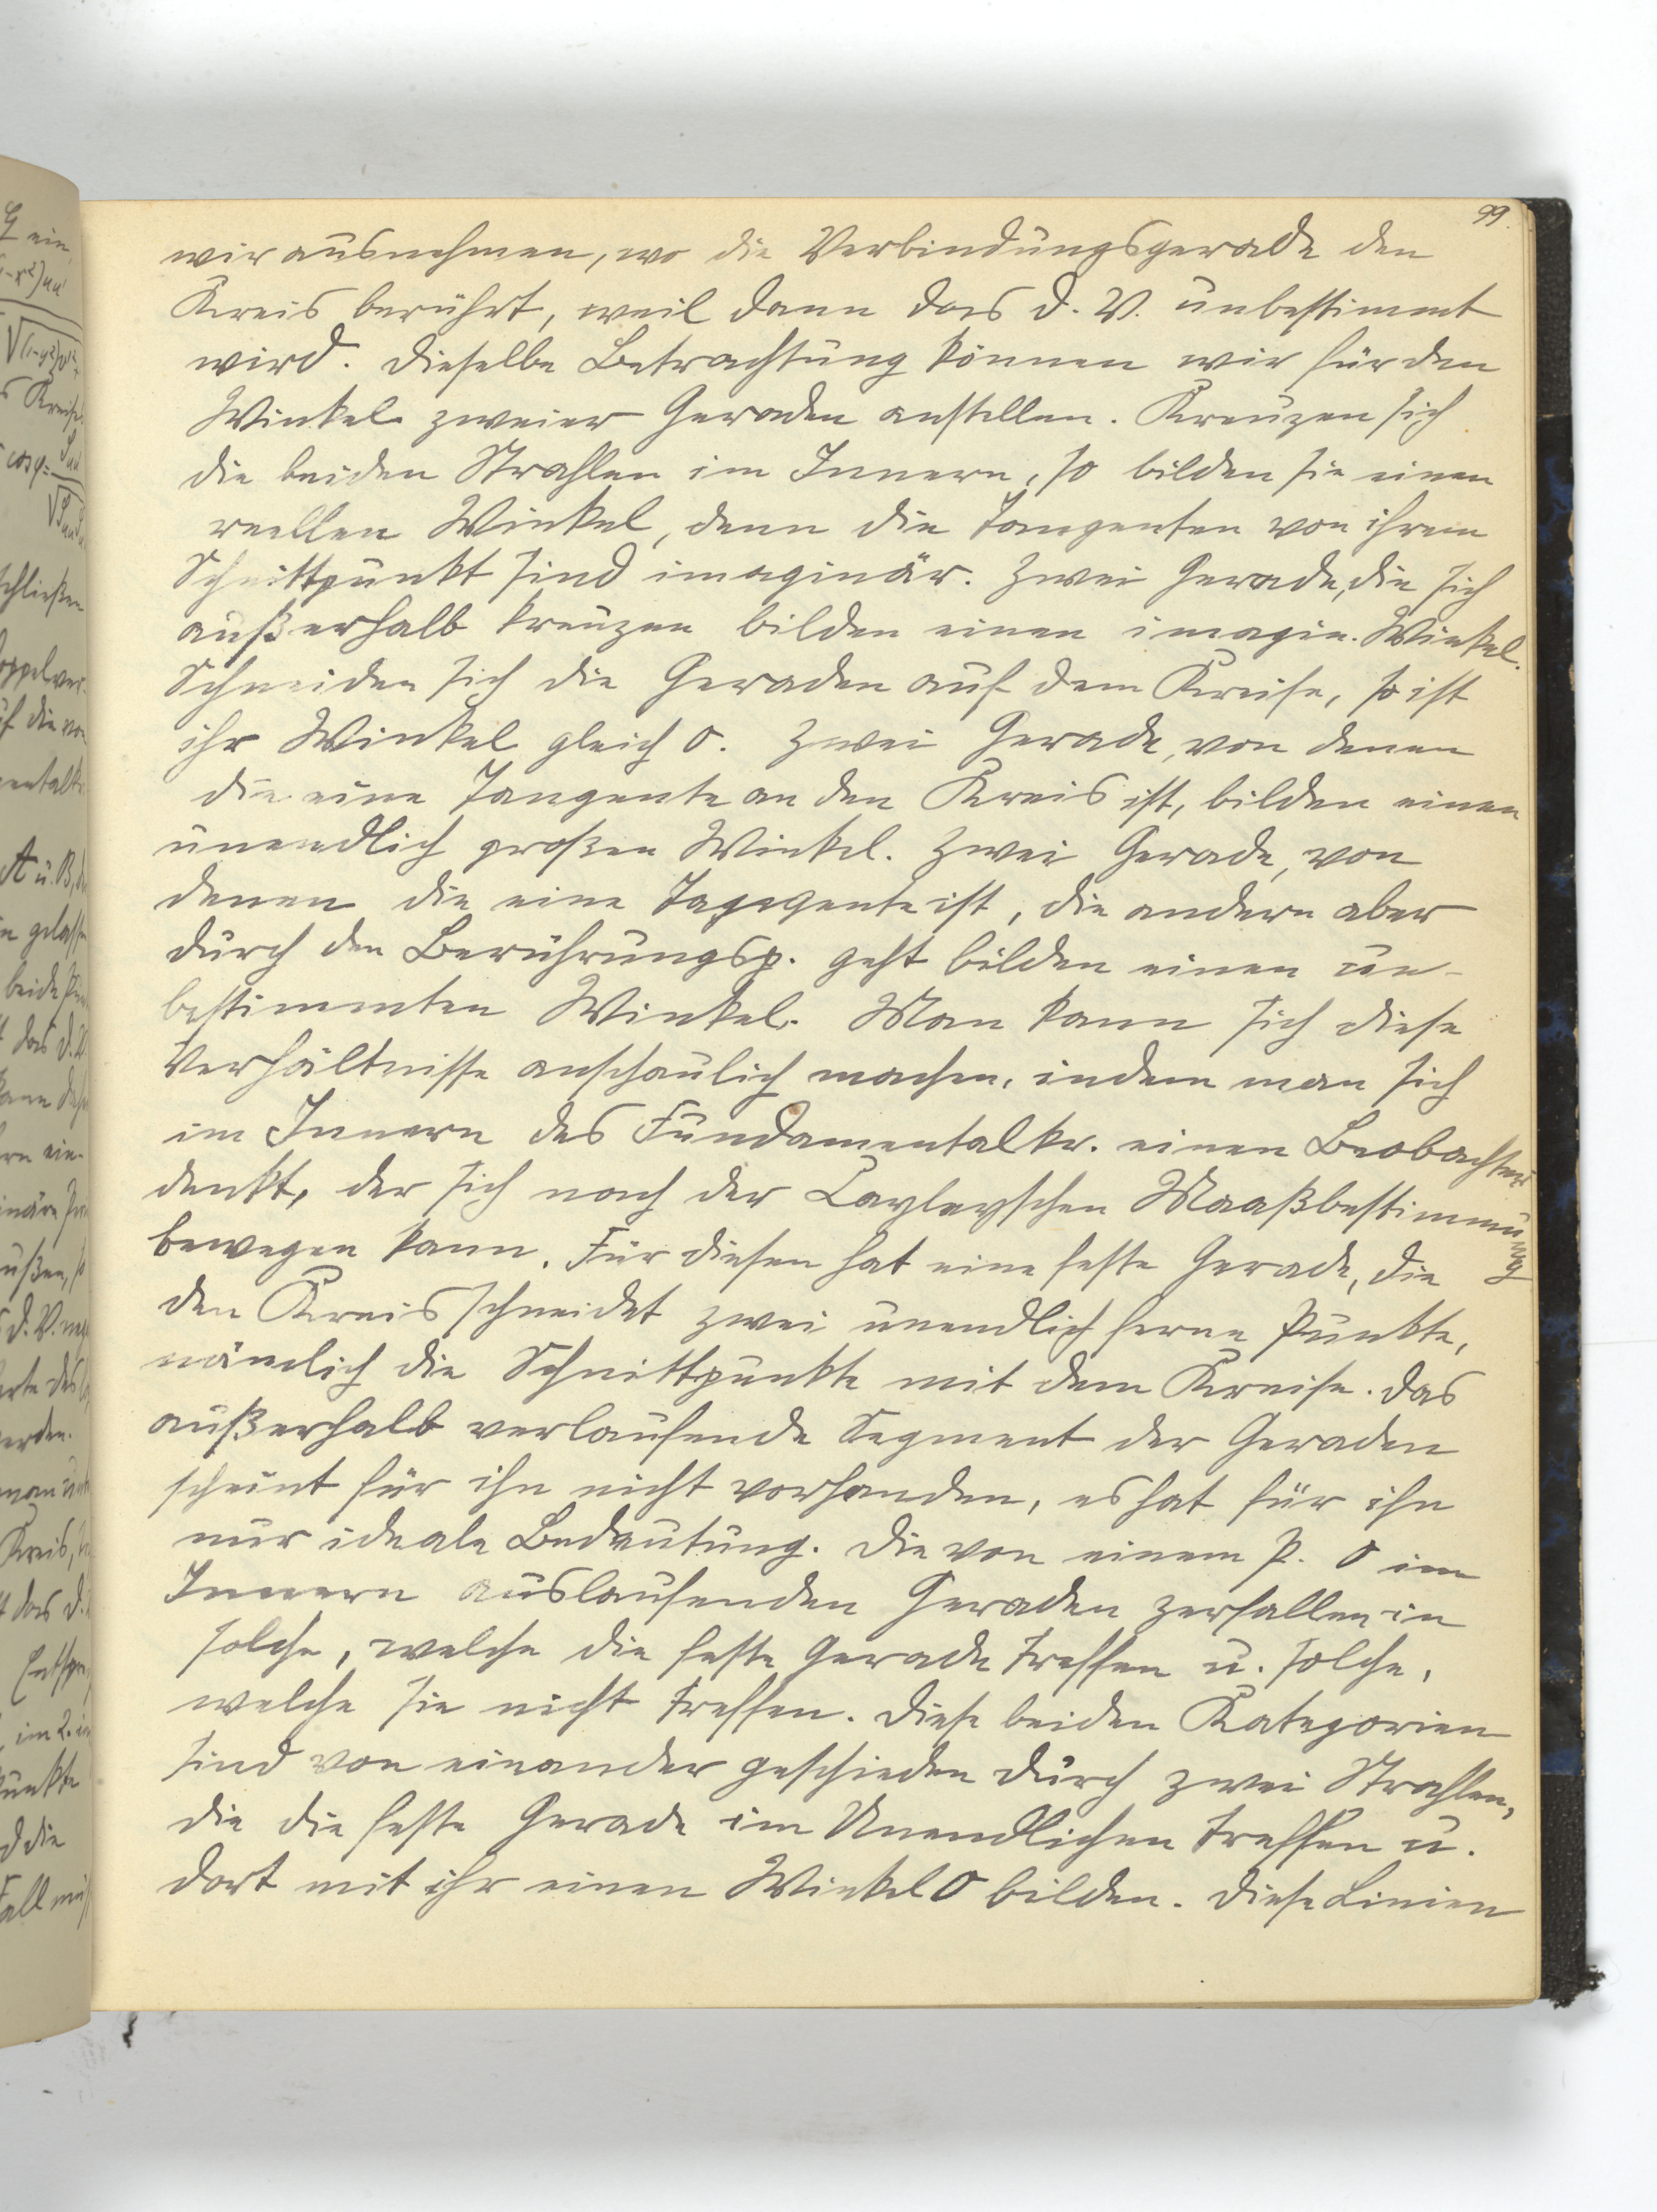 99.
wir ausnehmen, wo die Verbindungsgerade den
Kreis berührt, weil dann das D. V. unbestimmt
wird. Dieselbe Betrachtung können wir für den
Winkel zweier Geraden anstellen. Kreuzen sich
die beiden Strahlen im Innern, so bilden sie einen
reellen Winkel, denn die Tangenten von ihrem
Schnittpunkt sind imaginär. Zwei Gerade, die sich
außerhalb kreuzen bilden einen imagin. Winkel.
Schneiden sich die Geraden auf dem Kreise, so ist
ihr Winkel gleich 0. Zwei Gerade, von denen
die eine Tangente an den Kreis ist, bilden einen
unendlich großen Winkel. Zwei Gerade, von
denen die eine Tangente ist, die andere aber
durch den Berührungsp. geht bilden einen un-
bestimmten Winkel. Man kann sich diese
Verhältnisse anschaulich machen, indem man sich
im Innern des Fundamentalkr. einen Beobachter
denkt, der sich nach der Cayleyschen Maaßbestimmung
bewegen kann. Für diesen hat eine feste Gerade, die
den Kreis schneidet zwei unendlich ferne Punkte,
nämlich die Schnittpunkte mit dem Kreise. Das
außerhalb verlaufende Segment der Geraden
scheint für ihn nicht vorhanden, es hat für ihn
nur ideale Bedeutung. Die von einem P. O im
Innern auslaufenden Geraden zerfallen in
solche, welche die feste Gerade treffen u. solche,
welche sie nicht treffen. Diese beiden Kategorien
sind von einander geschieden durch zwei Strahlen,
die die feste Gerade im Unendlichen treffen u.
dort mit ihr einen Winkel 0 bilden. Diese Linien